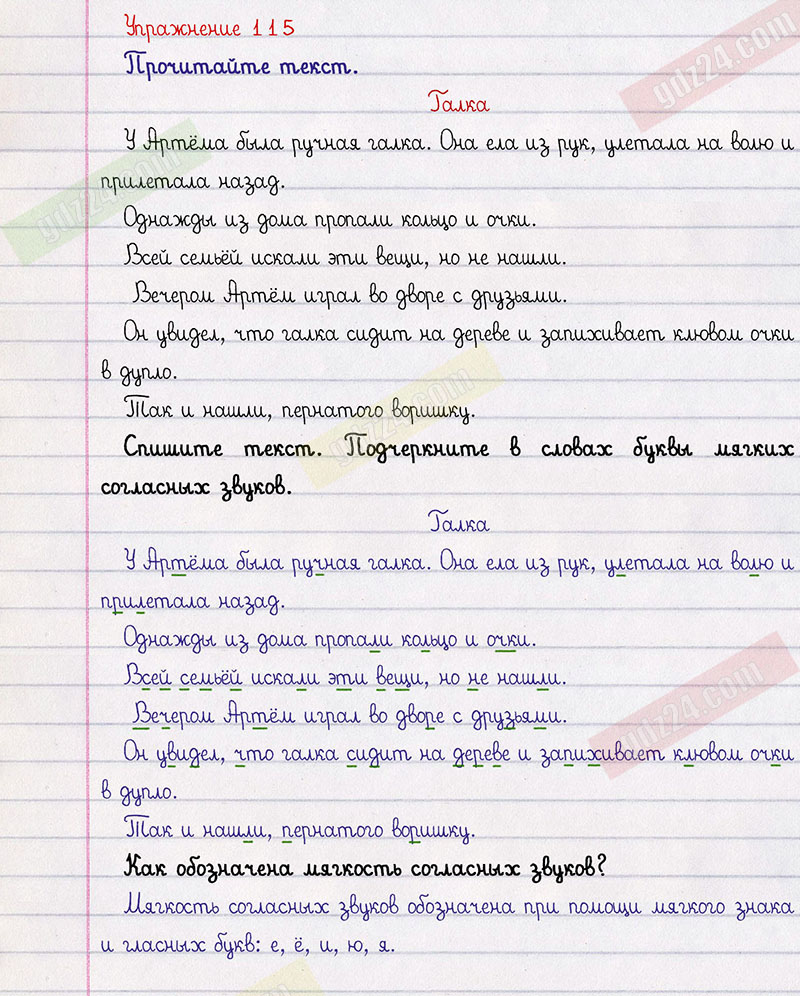 Упражнение 115
Прочитайте текст.
gdz24.com
Галка
У Артёма была ручная галка. Она ела из рук, улетала на волю и
прилетала назад.
gdz24.com
Однажды из дома пропали кольцо и очки.
Всей семьёй искали эти вещи, но не нашли.
Вечером Артём играл во дворе с друзьями.
Он увидел, что галка сидит на дереве и запихивает клювом очки
в дупло.
gdz24.com
Так и нашли, пернатого воришку.
Спишите текст. Подчеркните в словах буквы мягких
согласных звуков.
Галка
У Артёма была ручная галка. Она ела из рук, улетала на волю и
прилетала назад.
Однажды из дома пропали кольцо и очки.
Всей семьёй искали эти вещи, но не нашли.
gdz24.com
Вечером Артём играл во дворе с друзьями.
Он увидел, что галка сидит на дереве и запихивает клювом очки
в дупло.
Так и нашли, пернатого воришку.
Как обозначена мягкость согласных звуков?
Мягкость согласных звуков обозначена при помощи мягкого знака
и гласных букв: е, ё, и, ю, я.